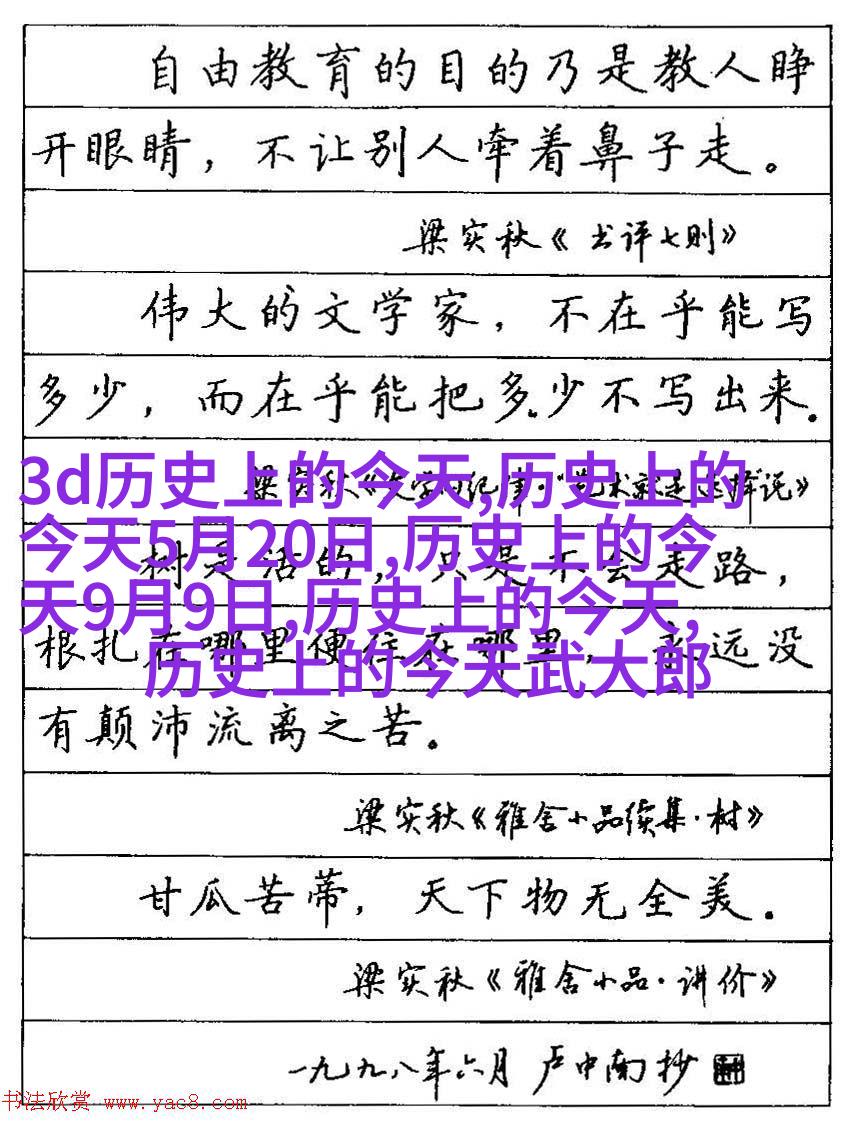 自由教育的目的乃是教人睁
开眼睛，不让别人牵着鼻子走。
梁实秋《书评七则》
伟大的文学家，不在乎能写
多少，而在乎能把多少不写出来.
梁实秋《文学的纪律·"艺术就是选择"说》
3d历史上的今天,历史上的
今天5月20日,历史上的今
天9月9日,历史上的今天,
历史上的今天武大郎
树是活的，只是不会走路，
根扎在哪里便住在哪里，永远没
有颠沛流离之苦。
梁实秋《雅舍小品续集·树》
甘瓜苦蒂，天下物无全美.
梁实秋《雅舍小品·讲价》
一九九八年六月 卢中南抄
书法欣赏 www.yac8.com